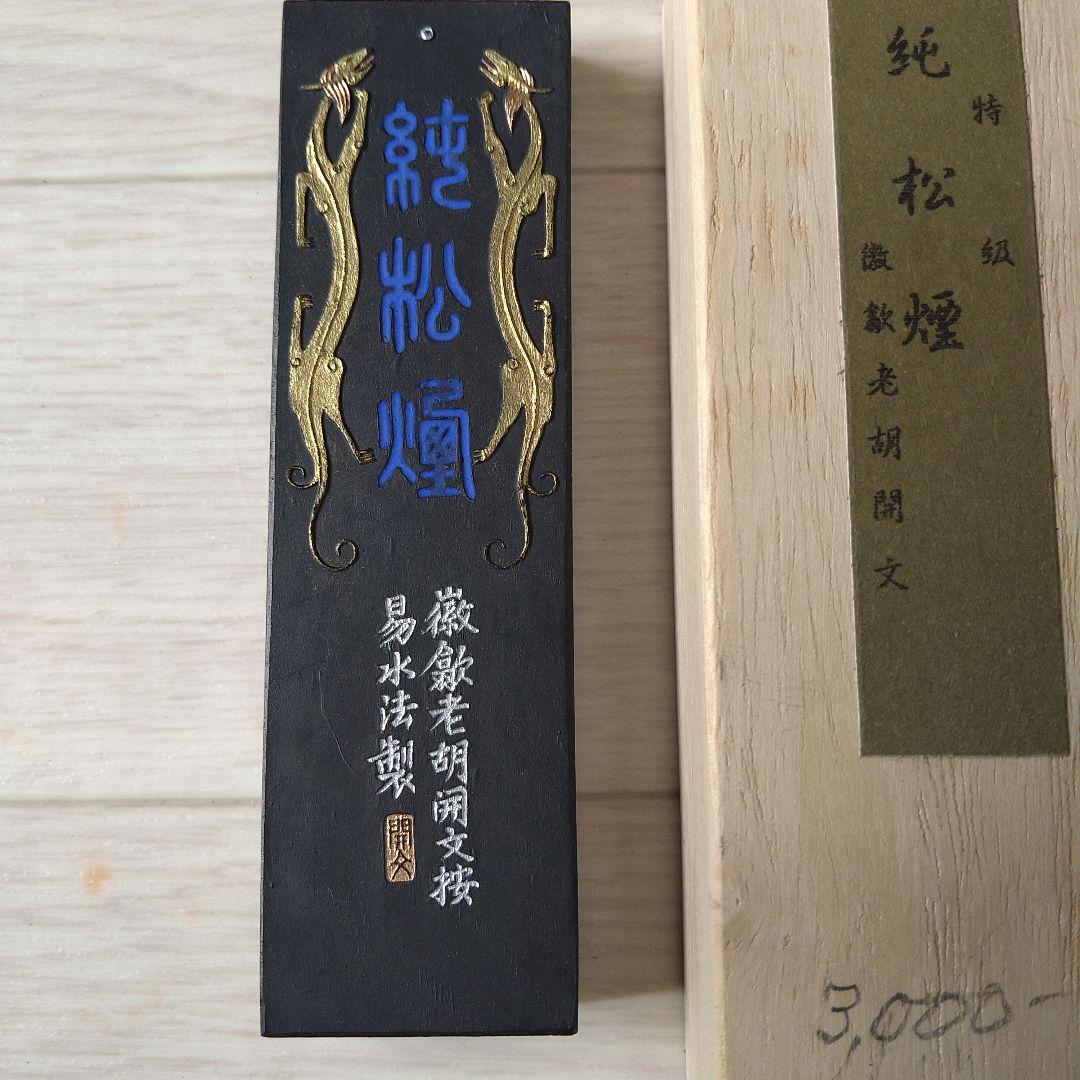 純松煙
徽歙老胡開文按
易水法製
開文
特级
純松煙
徽歙老胡開文
3,000-